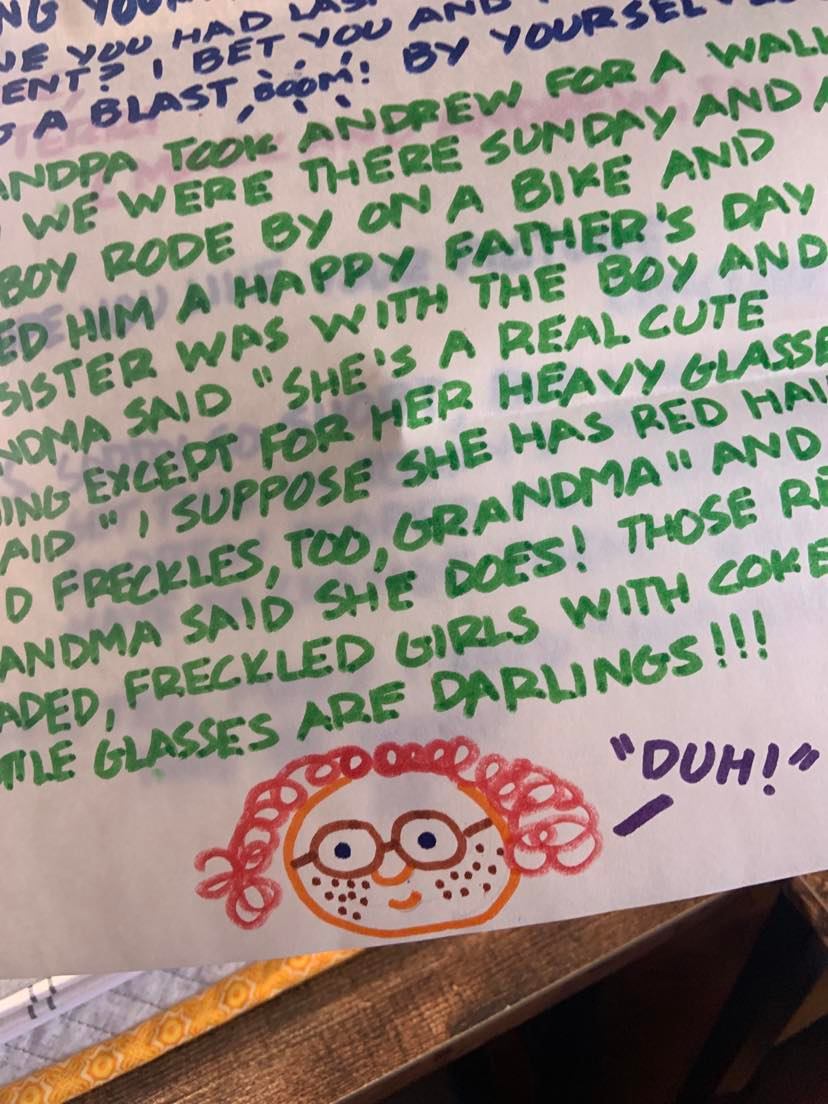 NG YOU
VE YOU HAD LAS
ENT? I BET YOU AND
G A BLAST BOOM! BY YOURSELVES
ANDPA TOOK ANDREW FOR A WALK
WE WERE THERE SUNDAY AND A
BOY RODE BY ON A BIKE AND
ED HIM A HAPPY FATHER'S DAY
SISTER WAS WITH THE BOY AND
NDMA SAID "SHE'S A REAL CUTE
ING EXCEPT FOR HER HEAVY GLASSE
AID "I SUPPOSE SHE HAS RED HAI
D FRECKLES, TOO, GRANDMA" AND
ANDMA SAID SHE DOES! THOSE RE
ADED, FRECKLED GIRLS WITH COKE
TTLE GLASSES ARE DARLINGS!!!
"DUH!"